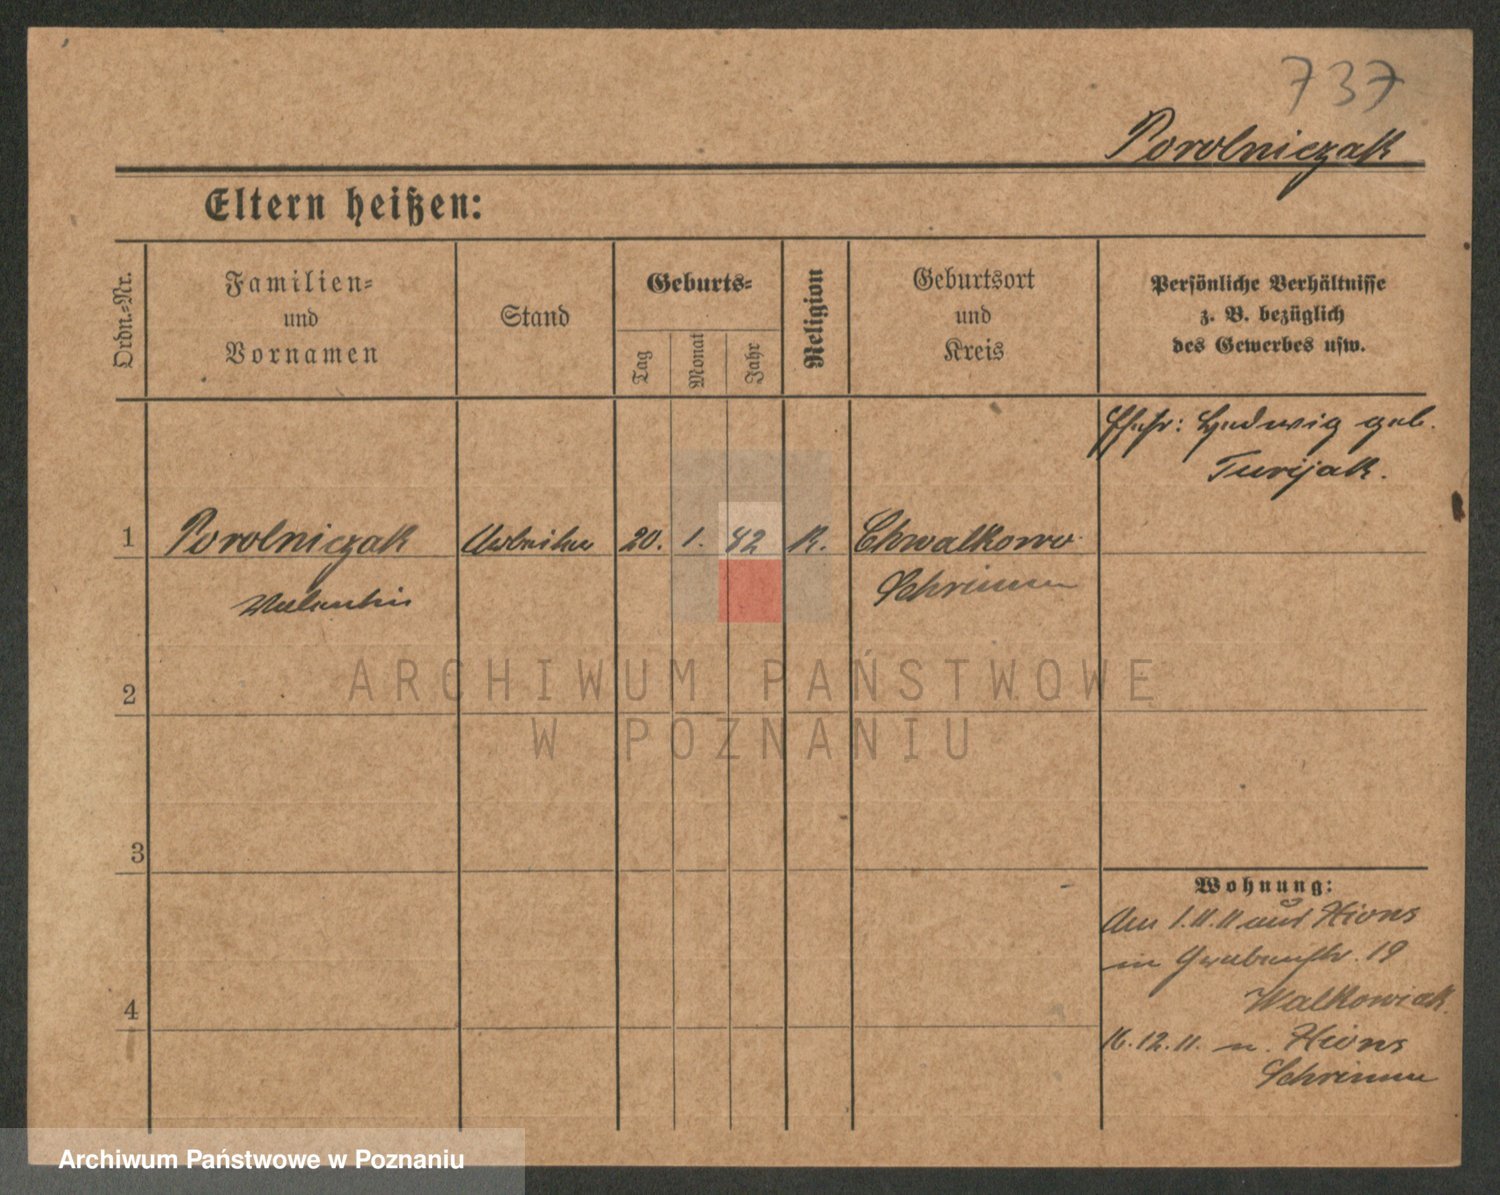 737
Porolniczak
Eltern heißen:
Ordn.-Nr.
Familien-
und
Vornamen
Stand
Geburts-
Tag
Monat
Jahr
Religion
Geburtsort
und
Kreis
Persönliche Verhältnisse
z. B. bezüglich
des Gewerbes usw.
Hedwig geb.
Turijak.
1 Porolniczak Arbeiter 20. 1. 82 K. Chwalkowo
Valentin Schrimm
2
ARCHIWUM PAŃSTWOWE
W POZNANIU
3
Wohnung:
Am 1.11.11 aus Xions
in Grabenstr. 19
Walkowiak.
16.12.11. n. Xions
Schrimm
4
Archiwum Państwowe w Poznaniu